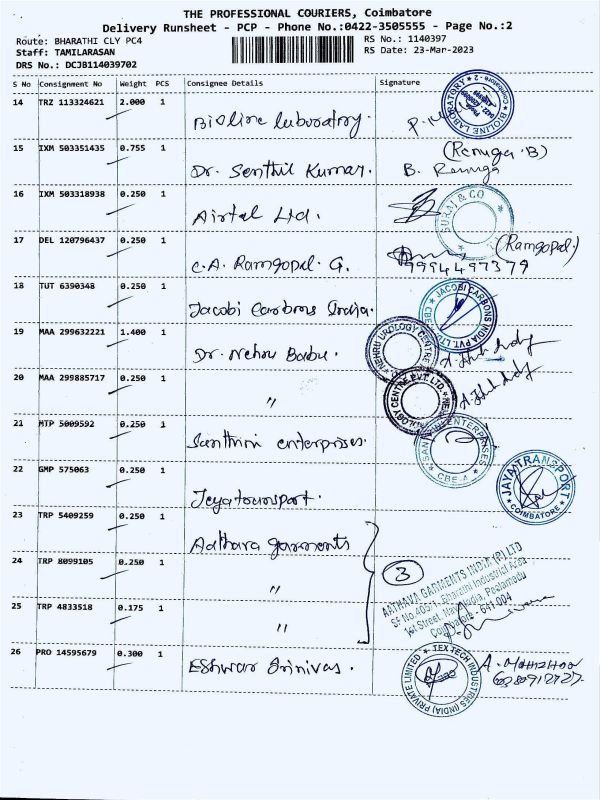 THE PROFESSIONAL COURIERS, Coimbatore
Delivery Runsheet - PCP - Phone No.:0422-3505555 - Page No.:2
Route: BHARATHI CLY PC4
RS No.: 1140397
Staff: TAMILARASAN
RS Date: 23-Mar-2023
DRS No.: DCJB114039702
S No Consignment No Weight PCS Consignee Details Signature
14 TRZ 113324621 2.000 1 Bioline laboratory.
BIOLINE LABORATORY
15 IXM 503351435 0.755 1 Dr. Senthil Kumar. B. Renuga (Renuga.B)
16 IXM 503318938 0.250 1 Airtal Ltd.
SURAJ & CO
17 DEL 120796437 0.250 1 C.A. Ramgopal. G. (Ramgopal)
9994497379
18 TUT 6390348 0.250 1 Jacobi Carbons India.
JACOBI CARBONS INDIA PVT LTD CBE
19 MAA 299632221 1.400 1 Dr. Nehru Babu.
NEHRU UROLOGY CENTRE
20 MAA 299885717 0.250 1 "
UROLOGY CENTRE PVT. LTD.
21 MTP 5009592 0.250 1 Santhini enterprises.
ENTERPRISES CBE-4
22 GMP 575063 0.250 1 Jeyatransport.
JAYA TRANSPORT COIMBATORE
23 TRP 5409259 0.250 1 Adthava garments
24 TRP 8099105 0.250 1 "
3
AATHAVA GARMENTS INDIA (P) LTD
SF No.405-1, Bharathi Industrial Area
1st Street, Nava India, Peelamedu
Coimbatore - 641 004
25 TRP 4833518 0.175 1 "
26 PRO 14595679 0.300 1 Eshwar Srinivas.
TEXTECH INDUSTRIES (INDIA) PRIVATE LIMITED